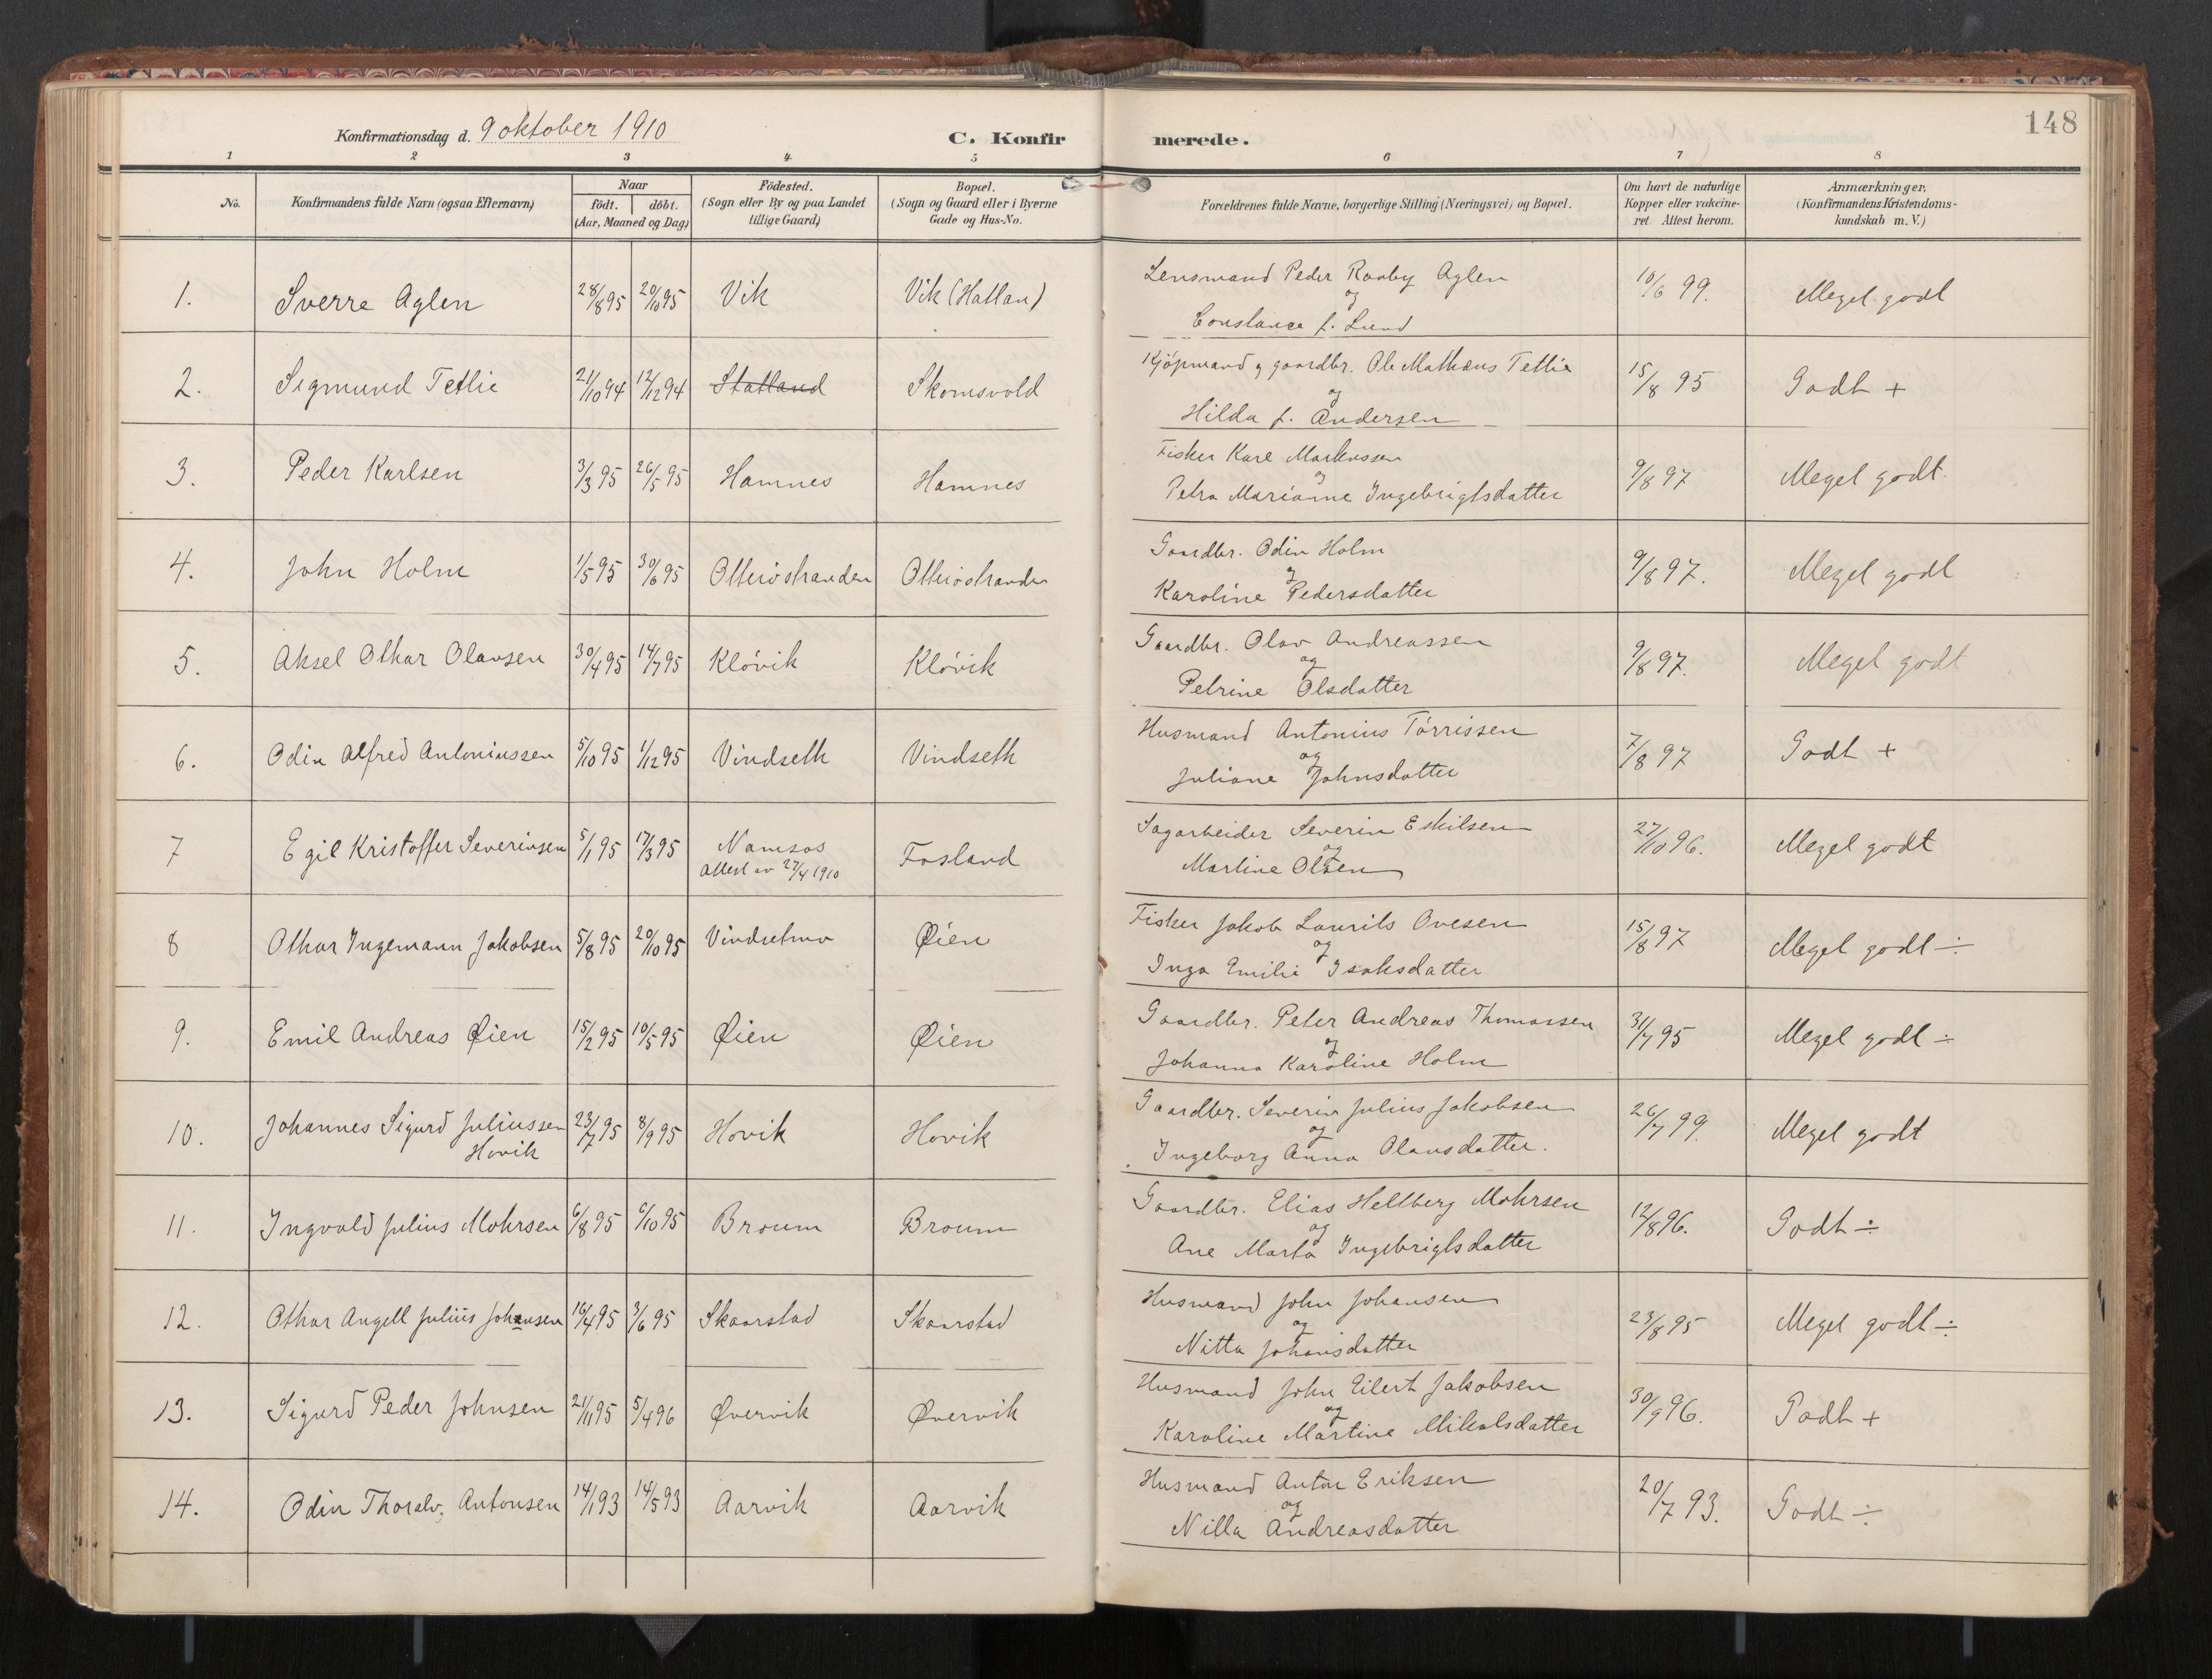 148
Konfirmationsdag d. 9 oktober 1910 C. Konfirmerede.
1 2 3 4 5 6 7 8
No. Konfirmandens fulde Navn (ogsaa Efternavn) Naar födt. döbt. (Aar, Maaned og Dag) Födested. (Sogn eller By og paa Landet tillige Gaard) Bopæl. (Sogn og Gaard eller i Byerne Gade og Hus-No. Forældrenes fulde Navne, borgerlige Stilling (Næringsvei) og Bopæl. Om havt de naturlige Kopper eller vakcineret. Attest herom. Anmærkninger, (Konfirmandens Kristendomskundskab m. V.)
1. Sverre Aglen 28/8 95 20/10 95 Vik Vik (Hatlan) Lensmand Peder Raaby Aglen
og
Constance f. Lund 10/6 99. Meget godt
2. Sigmund Tetlie 21/10 94 12/12 94 Statland Skomsvold Kjöpmand og gaardbr. Ole Mathæus Tetlie
og
Hilda f. Andersen 15/8 95 Godt +
3. Peder Karlsen 3/3 95 26/5 95 Hamnes Hamnes Fisker Karl Markussen
og
Petra Marianne Ingebrigtsdatter 9/8 97 Meget godt.
4. John Holm 1/5 95 30/6 95 Otteröstranden Otteröstranden Gaardbr. Odin Holm
og
Karoline Pedersdatter 9/8 97. Meget godt
5. Aksel Othar Olavsen 30/4 95 14/7 95 Klövik Klövik Gaardbr. Olav Andreassen
og
Petrine Olsdatter 9/8 97. Meget godt
6. Odin Alfred Antoniussen 5/10 95 1/12 95 Vindseth Vindseth Husmand Antonius Törrissen
og
Juliane Johnsdatter 7/8 97 Godt +
7 Egil Kristoffer Severinsen 5/1 95 17/3 95 Namsos
Attest av 27/4 1910 Fosland Sagarbeider Severin Eskilsen
og
Martine Olsen 27/10 96. Meget godt
8 Othar Ingemann Jakobsen 5/8 95 20/10 95 Vindsetmo Øien Fisker Jakob Laurits Ovesen
og
Inga Emilie Isaksdatter 15/8 97 Meget godt ÷
9. Emil Andreas Øien 15/2 95 10/5 95 Øien Øien Gaardbr. Peter Andreas Thomassen
og
Johanna Karoline Holm 31/7 95 Meget godt ÷
10. Johannes Sigurd Juliussen
Hovik 23/7 95 8/9 95 Hovik Hovik Gaardbr. Severin Julius Jakobsen
og
Ingeborg Anna Olausdatter. 26/7 99. Meget godt
11. Ingvald Julius Mohrsen 6/8 95 6/10 95 Broum Broum Gaardbr. Elias Heltberg Mohrsen
og
Ane Marta Ingebrigtsdatter 12/8 96. Godt ÷
12. Othar Angell Julius Johansen 16/4 95 3/6 95 Skaarstad Skaarstad Husmand John Johansen
og
Nitta Johansdatter 23/8 95 Meget godt ÷
13. Sigurd Peder Johnsen 21/11 95 5/4 96 Øvervik Øvervik Husmand John Eilert Jakobsen
og
Karoline Martine Mikalsdatter 30/9 96. Godt +
14. Odin Thoralv. Antonsen 14/1 93 14/5 93 Aarvik Aarvik Husmand Anton Eriksen
og
Nilla Andreasdatter 20/7 93. Godt ÷